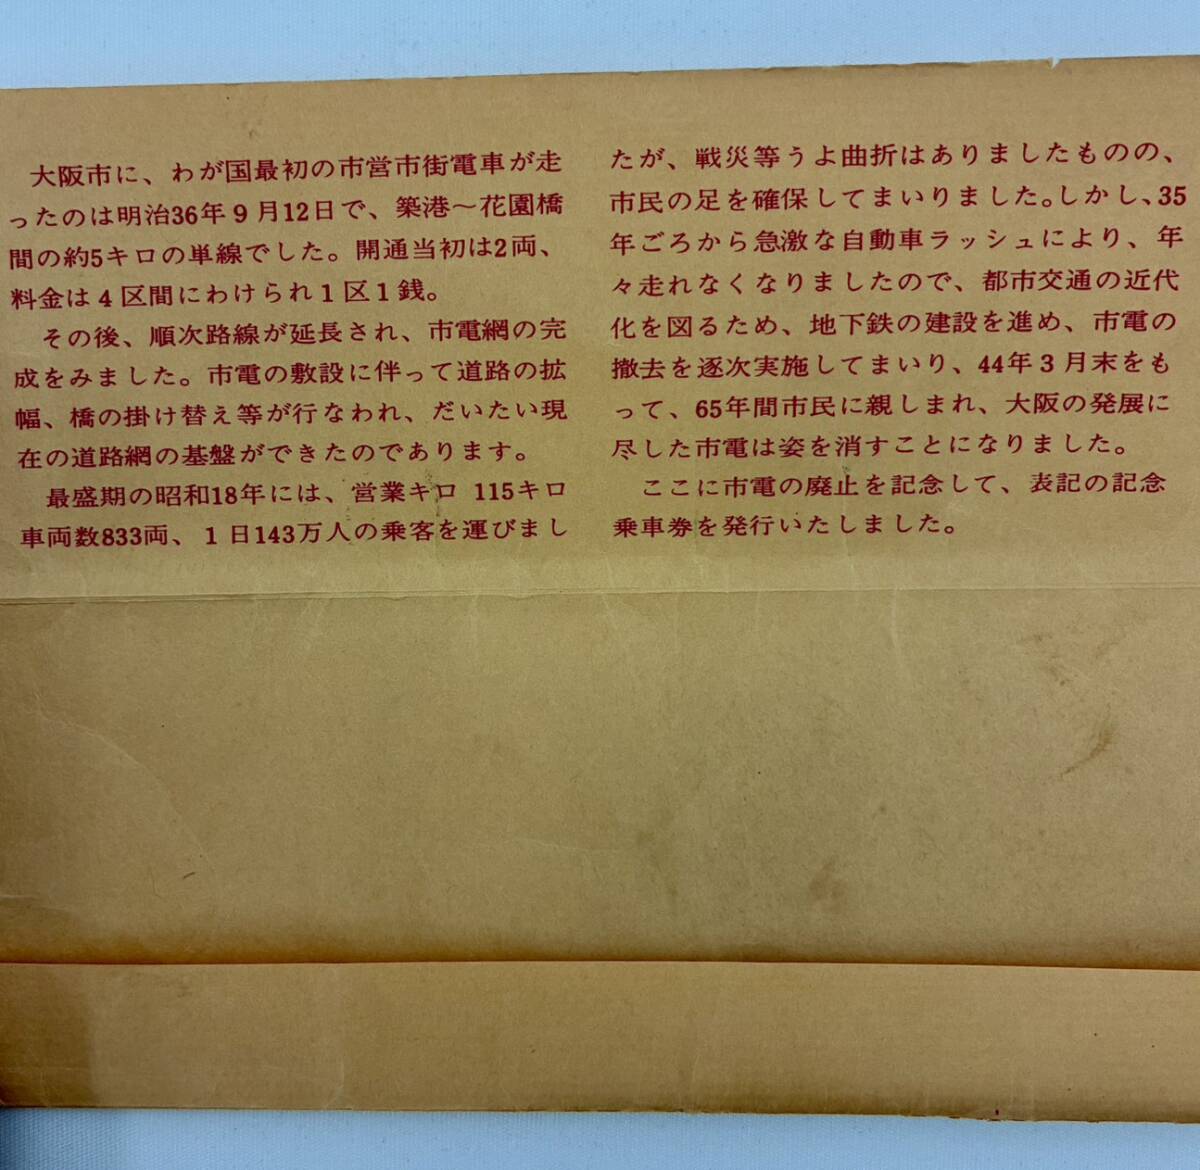 大阪市に、わが国最初の市営市街電車が走
ったのは明治36年9月12日で、築港〜花園橋
間の約5キロの単線でした。開通当初は2両、
料金は4区間にわけられ1区1銭。
その後、順次路線が延長され、市電網の完
成をみました。市電の敷設に伴って道路の拡
幅、橋の掛け替え等が行なわれ、だいたい現
在の道路網の基盤ができたのであります。
最盛期の昭和18年には、営業キロ 115キロ
車両数833両、1日143万人の乗客を運びまし
たが、戦災等うよ曲折はありましたものの、
市民の足を確保してまいりました。しかし、35
年ごろから急激な自動車ラッシュにより、年
々走れなくなりましたので、都市交通の近代
化を図るため、地下鉄の建設を進め、市電の
撤去を逐次実施してまいり、44年3月末をも
って、65年間市民に親しまれ、大阪の発展に
尽した市電は姿を消すことになりました。
ここに市電の廃止を記念して、表記の記念
乗車券を発行いたしました。